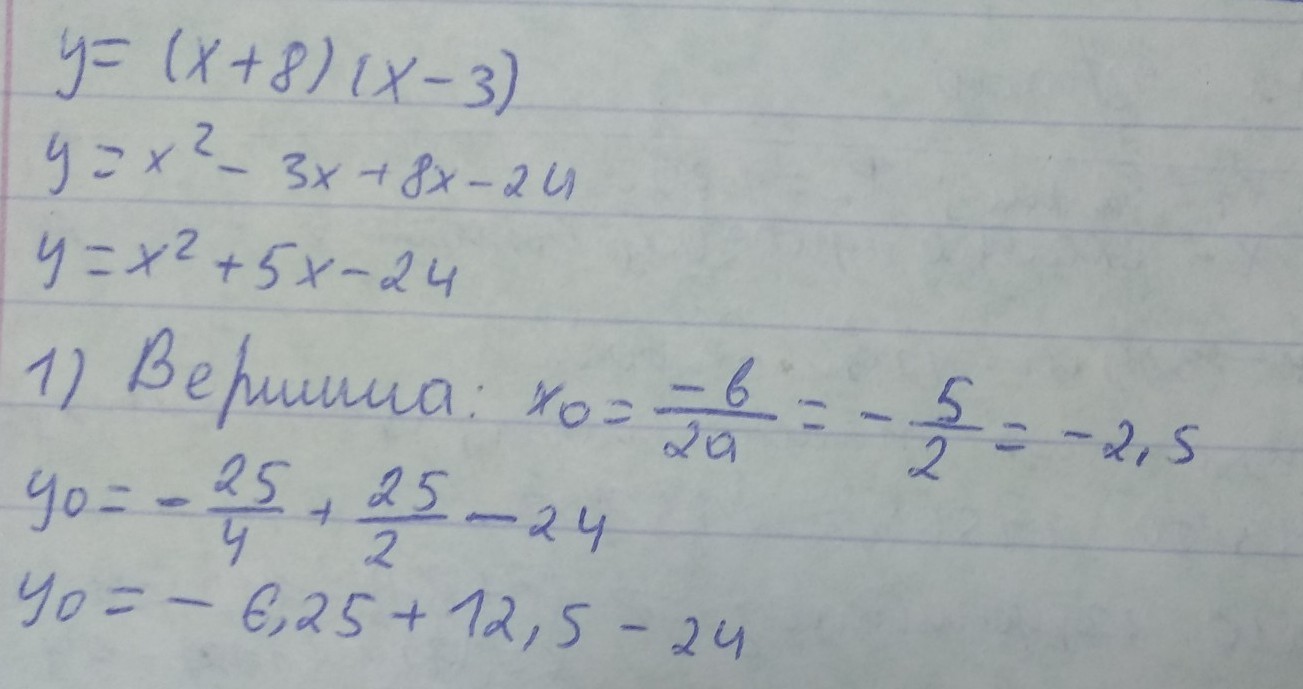 y = (x+8)(x-3)
y = x² - 3x + 8x - 24
y = x² + 5x - 24
1) Вершина: x₀ = -в/2a = - 5/2 = -2,5
y₀ = - 25/4 + 25/2 - 24
y₀ = - 6,25 + 12,5 - 24